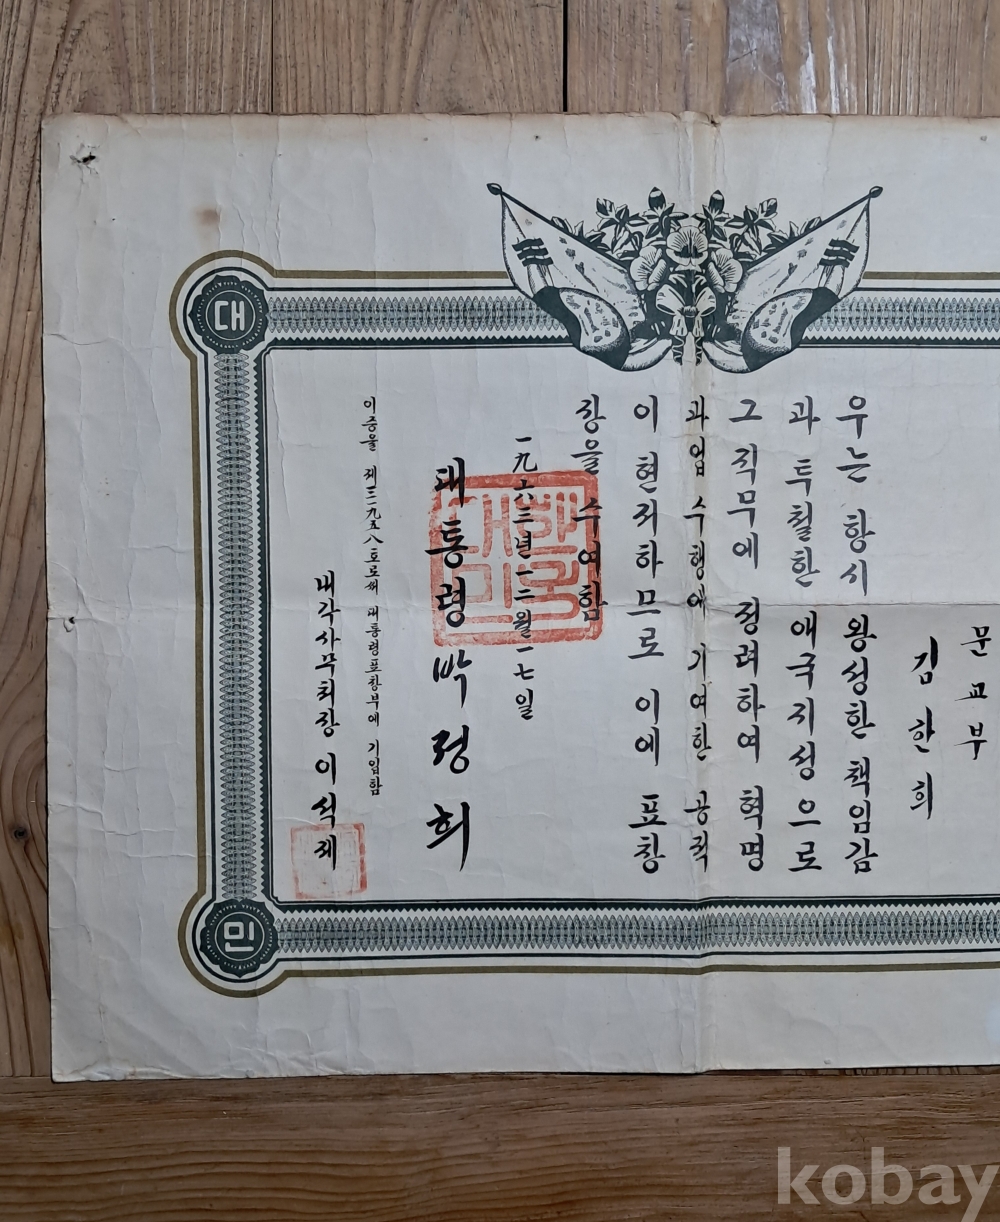 문교부
김한희
우는 항시 왕성한 책임감
과 투철한 애국지성으로
그 직무에 정려하여 혁명
과업 수행에 기여한 공적
이 현저하므로 이에 표창
장을 수여함
一九六三년一二월一七일
대통령 박정희
이증을 제三一九五八호로써 대통령표창부에 기입함
내각사무처장 이석제
대
민
kobay